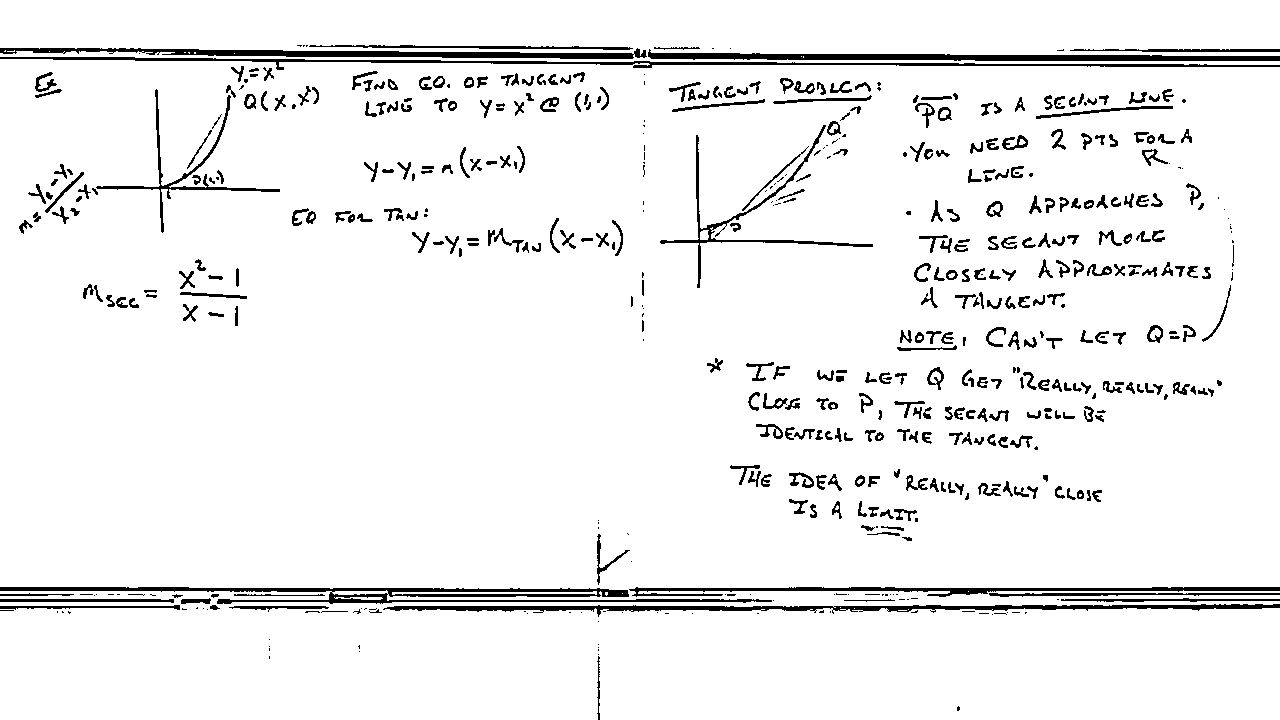 Ex
y = x²
Q(x, x²)
P(1,1)
1
m = y₂ - y₁ / x₂ - x₁
m SEC = x² - 1 / x - 1
FIND EQ. OF TANGENT
LINE TO y = x² @ (1,1)
y - y₁ = m(x - x₁)
EQ FOR TAN:
y - y₁ = m TAN (x - x₁)
TANGENT PROBLEM:
Q
P
"PQ" IS A SECANT LINE.
· YOU NEED 2 PTS FOR A
LINE.
· AS Q APPROACHES P,
THE SECANT MORE
CLOSELY APPROXIMATES
A TANGENT.
NOTE: CAN'T LET Q=P
* IF WE LET Q GET "REALLY, REALLY, REALLY"
CLOSE TO P, THE SECANT WILL BE
IDENTICAL TO THE TANGENT.
THE IDEA OF "REALLY, REALLY" CLOSE
IS A LIMIT.